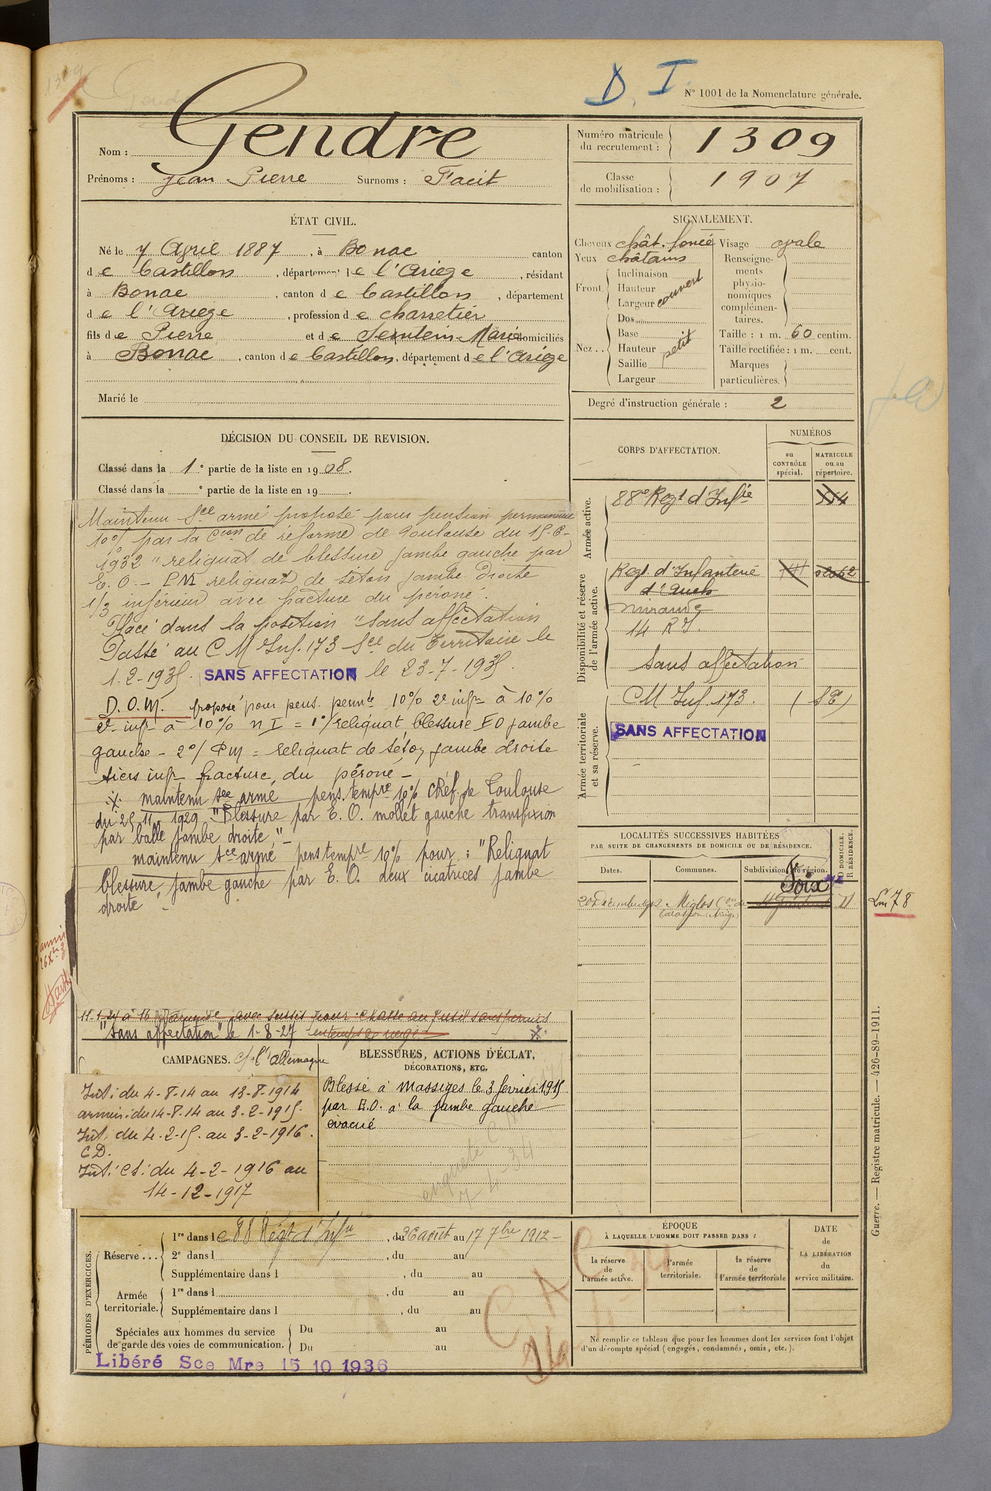 1309
D. I.
N° 1001 de la Nomenclature générale.
Nom : Gendre
Prénoms : Jean Pierre Surnoms : Facit
Numéro matricule du recrutement : 1309
Classe de mobilisation : 1907
ÉTAT CIVIL.
Né le 7 Avril 1887, à Bonac canton
de Castillon, département de l'Ariège, résidant
à Bonac, canton de Castillon, département
de l'Ariège, profession de charretier
fils de Pierre et de Sentein Marie domiciliés
à Bonac, canton de Castillon, département de l'Ariège
Marié le
SIGNALEMENT.
Cheveux chât. foncé Visage ovale
Yeux châtains
Front Inclinaison Hauteur Largeur couvert
Nez Dos Base Hauteur Saillie Largeur petit
Renseignements physionomiques complémentaires.
Taille : 1 m. 60 centim.
Taille rectifiée : 1 m. cent.
Marques particulières.
Degré d'instruction générale : 2
DÉCISION DU CONSEIL DE REVISION.
Classé dans la 1e partie de la liste en 1908.
Classé dans la e partie de la liste en 19
Maintenu Sce armé proposé pour pension permanente
10% par la Cion de réforme de Toulouse du 15-6-
1932 "reliquat de blessure jambe gauche par
E. O. - P.M. reliquat de séton jambe droite
1/3 inférieur avec fracture du péroné".
Placé dans la position "Sans affectation
Passé au C M Inf. 173 Sce du Territoire le
1-2-1935. SANS AFFECTATION le 23-7-1935.
D.O.M. proposé pour pens. permte 10% 2e infé à 10%
2e infé à 10% n I = 1°/ reliquat blessure EO jambe
gauche - 2°/ PM = reliquat de séton jambe droite
tiers infr fracture du péroné -
maintenu sce armé pens. tempre 10% cRéf. de Toulouse
du 25 11 1929 "Blessure par E. O. mollet gauche transfixion
par balle jambe droite" -
maintenu sce armé pens tempre 10% pour : "Reliquat
blessure jambe gauche par E. O. deux cicatrices jambe
droite
"Sans affectation" le 1-8-27
CORPS D'AFFECTATION.
NUMÉROS
au CONTRÔLE spécial.
MATRICULE ou au répertoire.
Armée active.
88e Regt d'Infie
Disponibilité et réserve de l'armée active.
Regt d'Infanterie
d'Auch
Mirande
14 R I.
Sans affectation
Armée territoriale et sa réserve.
CM Inf 173.
SANS AFFECTATION
LOCALITÉS SUCCESSIVES HABITÉES
PAR SUITE DE CHANGEMENTS DE DOMICILE OU DE RÉSIDENCE.
Dates. Communes. Subdivision de région. D DOMICILE. R RÉSIDENCE.
Foix
Miglos
CAMPAGNES. c/ l'allemagne
Int : du 4-8-14 au 13-8-1914
armées : du 14-8-14 au 3-2-1915.
Int. du 4-2-15. au 3-2-1916.
C D.
Int : CS : du 4-2-1916 au
14-12-1917
BLESSURES, ACTIONS D'ÉCLAT,
DÉCORATIONS, ETC.
Blessé à Massiges le 3 février 1915
par E.O. à la jambe gauche
évacué
PÉRIODES D'EXERCICES.
Réserve ... 1re dans le 88 Régt d'Infie, du 26 août au 17 7bre 1912
2e dans l , du au
Supplémentaire dans l , du au
Armée territoriale. 1re dans l , du au
Supplémentaire dans l , du au
Spéciales aux hommes du service de garde des voies de communication. Du au
Du au
Libéré Sce Mre 15 10 1936
ÉPOQUE
À LAQUELLE L'HOMME DOIT PASSER DANS :
la réserve de l'armée active.
l'armée territoriale.
la réserve de l'armée territoriale
DATE de LA LIBÉRATION du service militaire.
Ne remplir ce tableau que pour les hommes dont les services font l'objet
d'un décompte spécial (engagés, condamnés, omis, etc.).
Guerre. — Registre matricule. — 426-89-1911.